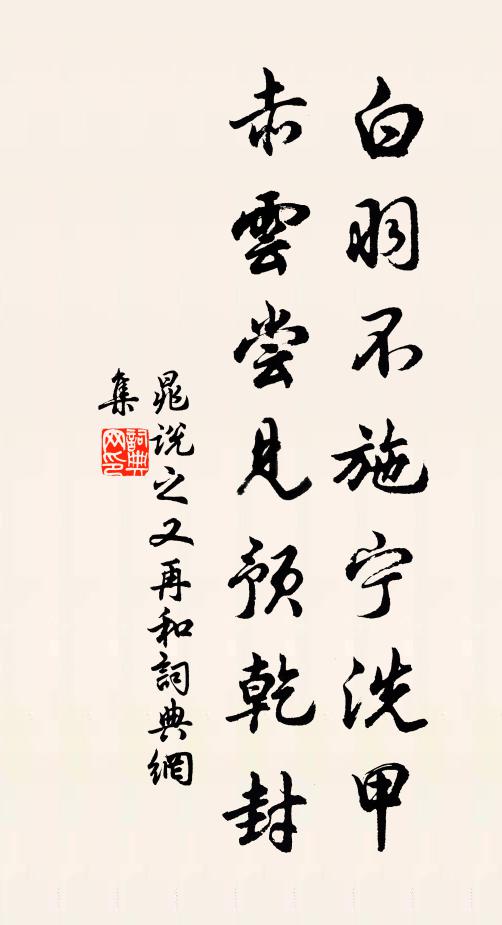 白羽不施宁洗甲
赤雲尝見预乾封
晁説之又再和詞典網
集
詞典网印